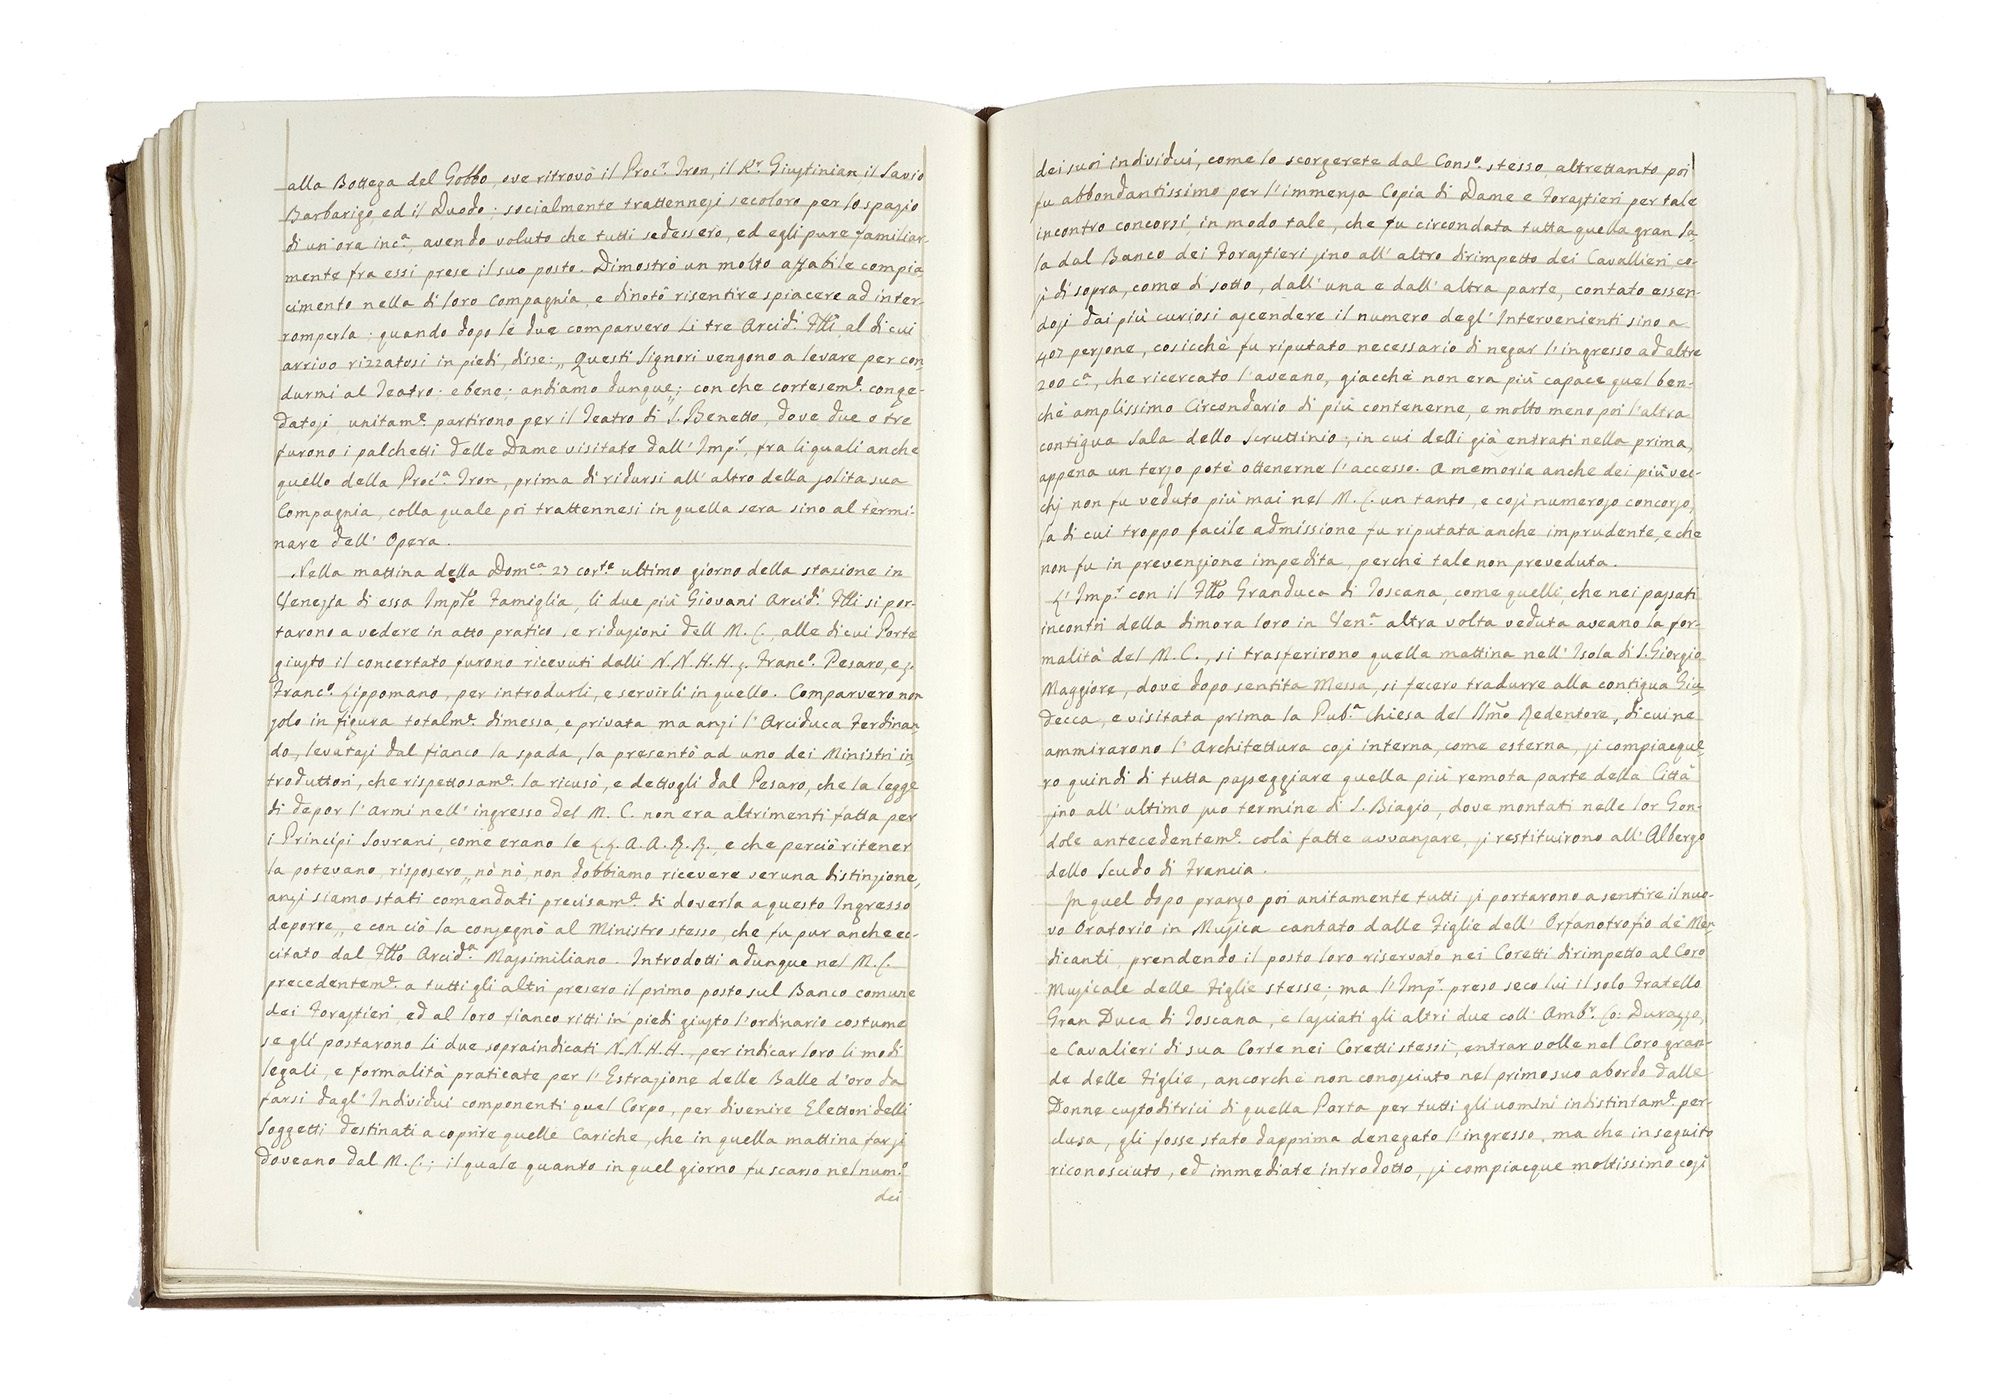 alla Bottega del Gobbo, ove ritrovò il Proc.r Tron, il K.r Giustinian, il Savio
Barbarigo, ed il Duodo; socialmente trattennesi secoloro per lo spazio
di un'ora inc.a, avendo voluto che tutti sedessero, ed egli pure familiar-
mente fra essi prese il suo posto. Dimostrò un molto affabile compia
cimento nella di loro Compagnia, e dinotò risentire spiacere ad inter-
romperla: quando dopo le due comparvero li tre Arcid.i Ftti, al di cui
arrivo rizzatosi in piedi, disse: „Questi Signori vengono a levare per con-
durmi al Teatro: ebene; andiamo dunque„; con che cortesem.e conge-
datosi unitam.e partirono per il Teatro di S. Benetto, dove due o tre
furono i palchetti delle Dame visitate dall' Imp.r, fra li quali anche
quello della Proc.a Tron, prima di ridursi all' altro della solita sua
Compagnia, colla quale poi trattennesi in quella sera sino al termi-
nare dell' Opera.
Nella mattina della Dom.ca 27 cor.te ultimo giorno della stazione in
Venezia di essa Imp.le Famiglia, li due più Giovani Arcid.i Ftti si por-
tarono a vedere in atto pratico, e riduzioni dell M. C., alle di cui Porte
giusto il concertato furono ricevuti dalli N. N. H. H. s. Franc.o Pesaro, e s.
Franc.o Lippomano, per introdurli, e servirli in quello. Comparvero non
solo in figura totalm.e dimessa, e privata, ma anzi l' Arciduca Ferdinan-
do, levatasi dal fianco la spada, la presentò ad uno dei Ministri in-
troduttori, che rispettosam.e la ricusò, e dettogli dal Pesaro, che la legge
di depor l' Armi nell' ingresso del M. C. non era altrimenti fatta per
i Principi Sovrani, come erano le L. L. A. A. R. R., e che perciò ritener
la potevano, risposero „nò nò, non dobbiamo ricevere veruna distinzione,
anzi siamo stati comandati precisam.e di doverla a questo Ingresso
deporre„, e con ciò la consegnò al Ministro stesso, che fu pur anche ec-
citato dal Ftto Arcid.a Massimiliano. Introdotti adunque nel M. C.
precedentem.e a tutti gli altri presero il primo posto sul Banco comune
dei Forastieri, ed al loro fianco ritti in piedi giusto l' ordinario costume
se gli postarono li due sopraindicati N. N. H. H., per indicar loro li modi
legali, e formalità praticate per l' Estrazione delle Balle d'oro da
farsi dagl' Individui componenti quel Corpo, per divenire Elettori delli
Soggetti destinati a coprire quelle Cariche, che in quella mattina farsi
doveano dal M. C.; il quale quanto in quel giorno fu scarso nel num.o
dei
dei suoi individui, come lo scorgerete dal Cons.o stesso, altrettanto poi
fu abbondantissimo per l' immensa Copia di Dame e Forastieri per tale
incontro concorsi, in modo tale, che fu circondata tutta quella gran Sa-
la dal Banco dei Forastieri sino all' altro dirimpetto dei Cavallieri co-
sì di sopra, come di sotto, dall' una e dall' altra parte, contato essen-
dosi dai più curiosi ascendere il numero degl' Intervenienti sino a
407 persone, cosicchè fu riputato necessario di negar l' ingresso ad altre
200 c.a, che ricercato l' aveano, giacchè non era più capace quel ben-
chè amplissimo Circondario di più contenerne, e molto meno poi l' altra
contigua Sala dello Scruttinio; in cui delli già entrati nella prima,
appena un terzo potè ottenerne l' accesso. A memoria anche dei più vec-
chj non fu veduto più mai nel M. C. un tanto, e così numeroso concorso,
la di cui troppo facile admissione fu riputata anche imprudente, e che
non fu in prevenzione impedita, perchè tale non preveduta.
L' Imp.r con il Ftto Granduca di Toscana, come quelli, che nei passati
incontri della dimora loro in Ven.a altra volta veduta aveano la for-
malità del M. C., si trasferirono quella mattina nell' Isola di S. Giorgio
Maggiore, dove dopo sentita Messa, si fecero tradurre alla contigua Giu-
decca, e visitata prima la Pub.a Chiesa del SS.mo Redentore, di cui ne
ammirarono l' Architettura così interna, come esterna, si compiacque-
ro quindi di tutta passeggiare quella più remota parte della Città
sino all' ultimo suo termine di S. Biagio, dove montati nelle lor Gon-
dole antecedentem.e colà fatte avvanzare, si restituirono all' Albergo
dello Scudo di Francia.
In quel dopo pranzo poi unitamente tutti si portarono a sentire il nuo-
vo Oratorio in Musica cantato dalle Figlie dell' Orfanotrofio de Men-
dicanti, prendendo il posto loro riservato nei Coretti dirimpetto al Coro
Musicale delle Figlie stesse; ma l' Imp.r preso seco lui il solo Fratello
Gran Duca di Toscana, e lasciati gli altri due coll' Amb.r Co: Durazzo,
e Cavalieri di sua Corte nei Coretti stessi, entrar volle nel Coro gran-
de delle Figlie, ancorchè non conosciuto nel primo suo abordo dalle
Donne custoditrici di quella Porta per tutti gli uomini indistintam.e per-
clusa, gli fosse stato dapprima denegato l' ingresso, ma che in seguito
riconosciuto, ed immediate introdotto, si compiacque moltissimo così